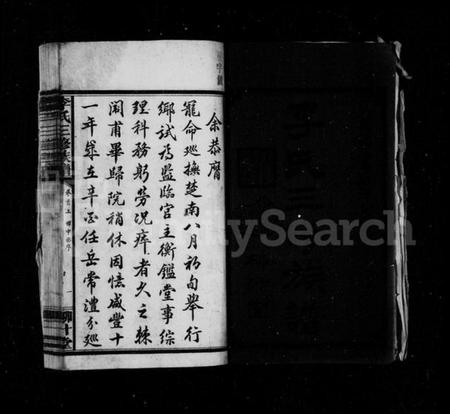 余恭膺
寵命巡撫楚南八月初旬舉行
鄉試為監臨官主衡鑑堂事綜
理科務躬勞況瘁者久之棘
闈甫畢歸院稍休因憶咸豐十
一年歲在辛酉任岳常澧分巡
李氏三修族譜
FamilySearch